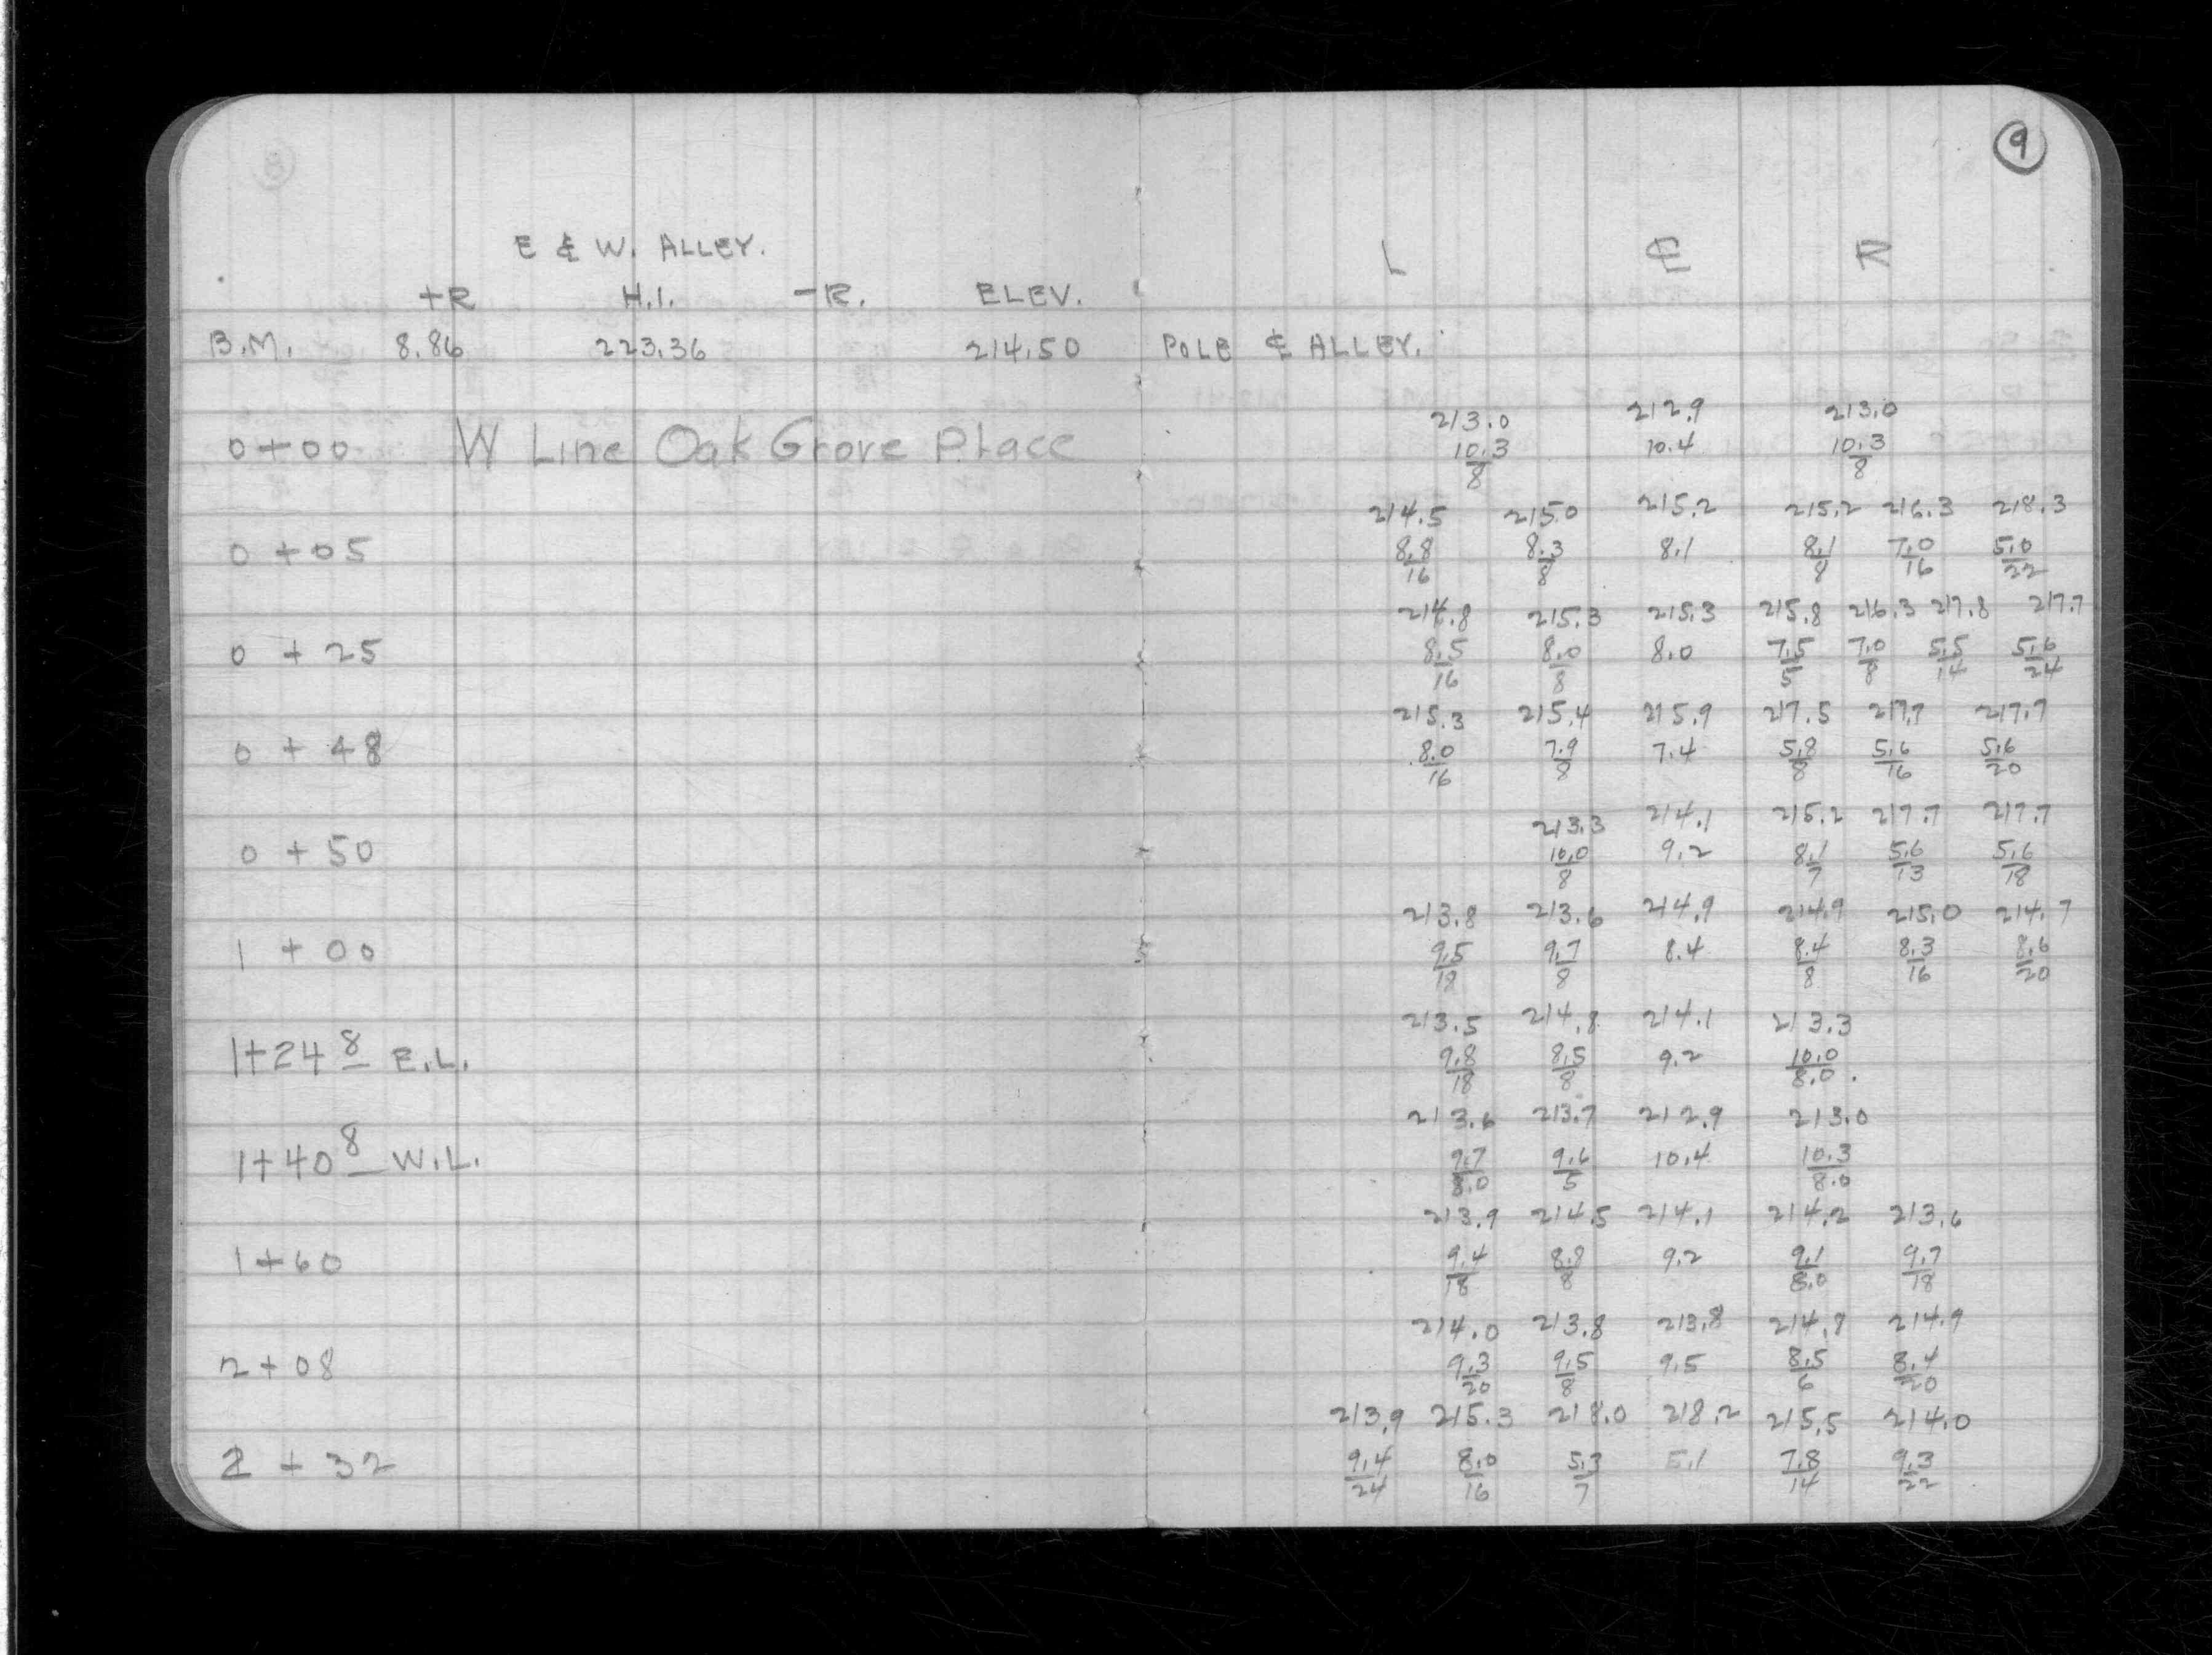 9
E & W. ALLEY.
L ℄ R
+R H.I. -R. ELEV.
B.M. 8.86 223.36 214.50 POLE ℄ ALLEY.
213.0 212.9 213.0
0+00 W Line Oak Grove Place 10.3/8 10.4 10.3/8
214.5 215.0 215.2 215.2 216.3 218.3
0+05 8.8/16 8.3/8 8.1 8.1/8 7.0/16 5.0/22
214.8 215.3 215.3 215.8 216.3 217.8 217.7
0+25 8.5/16 8.0/8 8.0 7.5/5 7.0/8 5.5/14 5.6/24
215.3 215.4 215.9 217.5 217.7 217.7
0+48 8.0/16 7.9/8 7.4 5.8/8 5.6/16 5.6/20
213.3 214.1 215.2 217.7 217.7
0+50 10.0/8 9.2 8.1/7 5.6/13 5.6/18
213.8 213.6 214.9 214.9 215.0 214.7
1+00 9.5/18 9.7/8 8.4 8.4/8 8.3/16 8.6/20
213.5 214.8 214.1 213.3
1+24 8 E.L. 9.8/18 8.5/8 9.2 10.0/8.0
213.6 213.7 212.9 213.0
1+40 8 W.L. 9.7/8.0 9.6/5 10.4 10.3/8.0
213.9 214.5 214.1 214.2 213.6
1+60 9.4/18 8.8/8 9.2 9.1/8.0 9.7/18
214.0 213.8 213.8 214.8 214.9
2+08 9.3/20 9.5/8 9.5 8.5/6 8.4/20
213.9 215.3 218.0 218.2 215.5 214.0
2+32 9.4/24 8.0/16 5.3/7 5.1 7.8/14 9.3/22